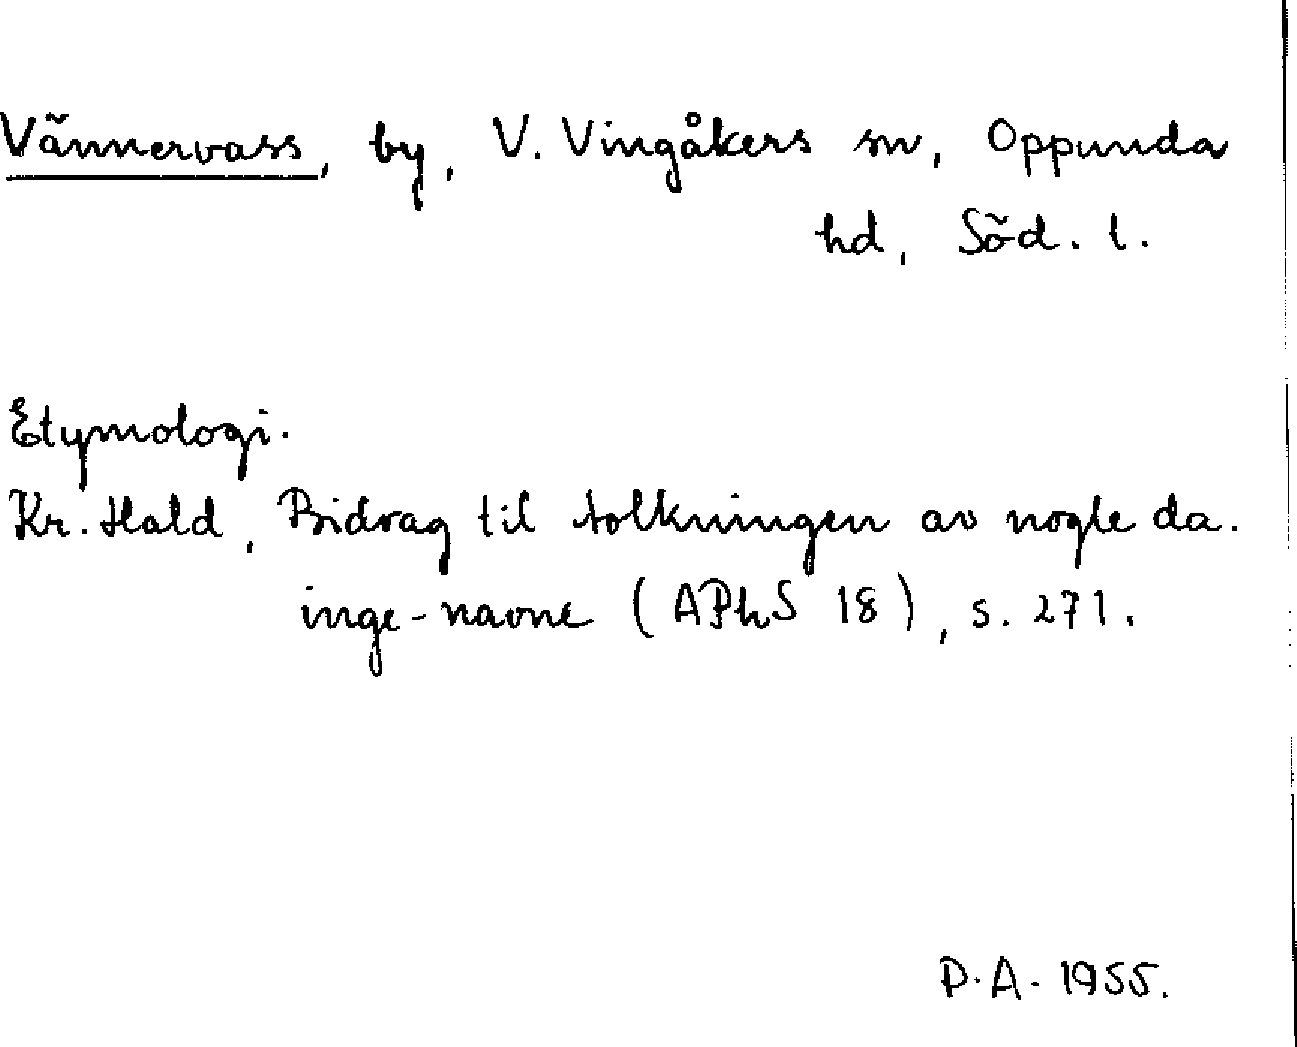 Vännervass, by, V. Vingåkers sn, Oppunda
hd, Söd. l.
Etymologi.
Kr. Hald, Bidrag til tolkningen av nogle da.
inge-navne (APhS 18), s. 271.
P.A. 1955.